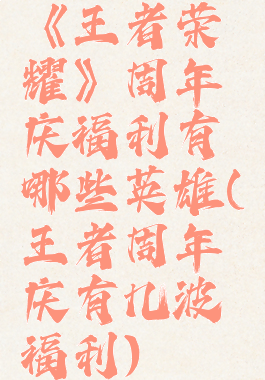 《王者荣
耀》周年
庆福利有
哪些英雄(
王者周年
庆有几波
福利)